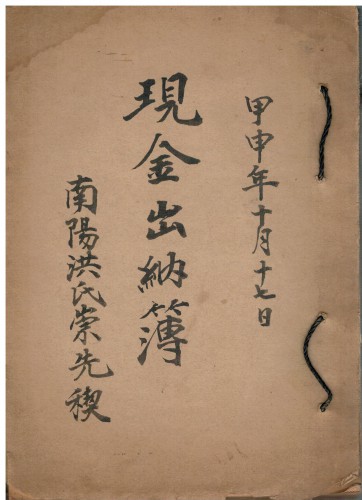 甲申年十月十七日
現金出納簿
南陽洪氏崇先稧